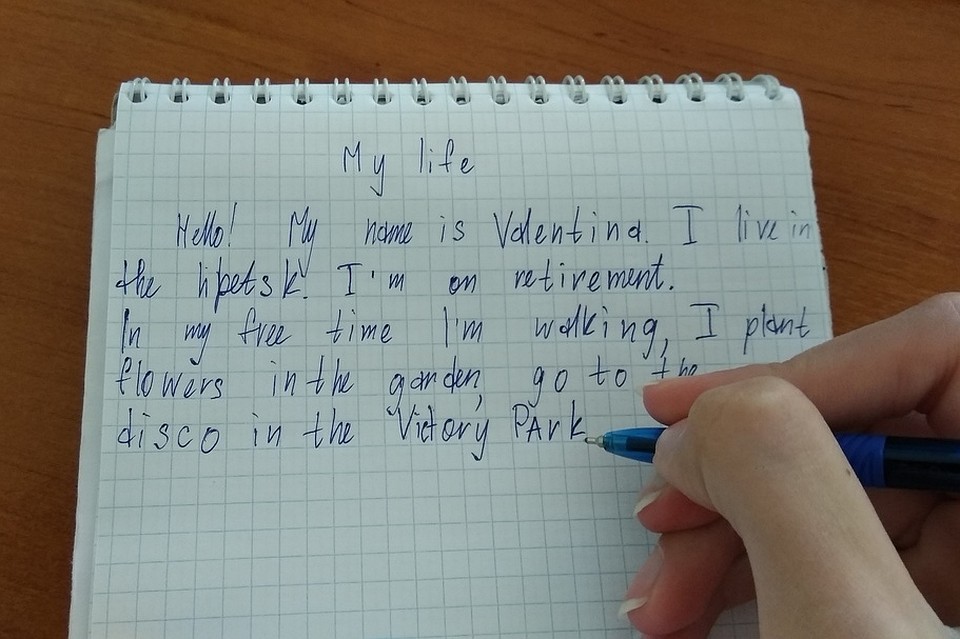 My life
Hello! My name is Valentina. I live in
the lipetsk. I'm on retirement.
In my free time I'm walking, I plant
flowers in the garden, go to the
disco in the Victory PArk.